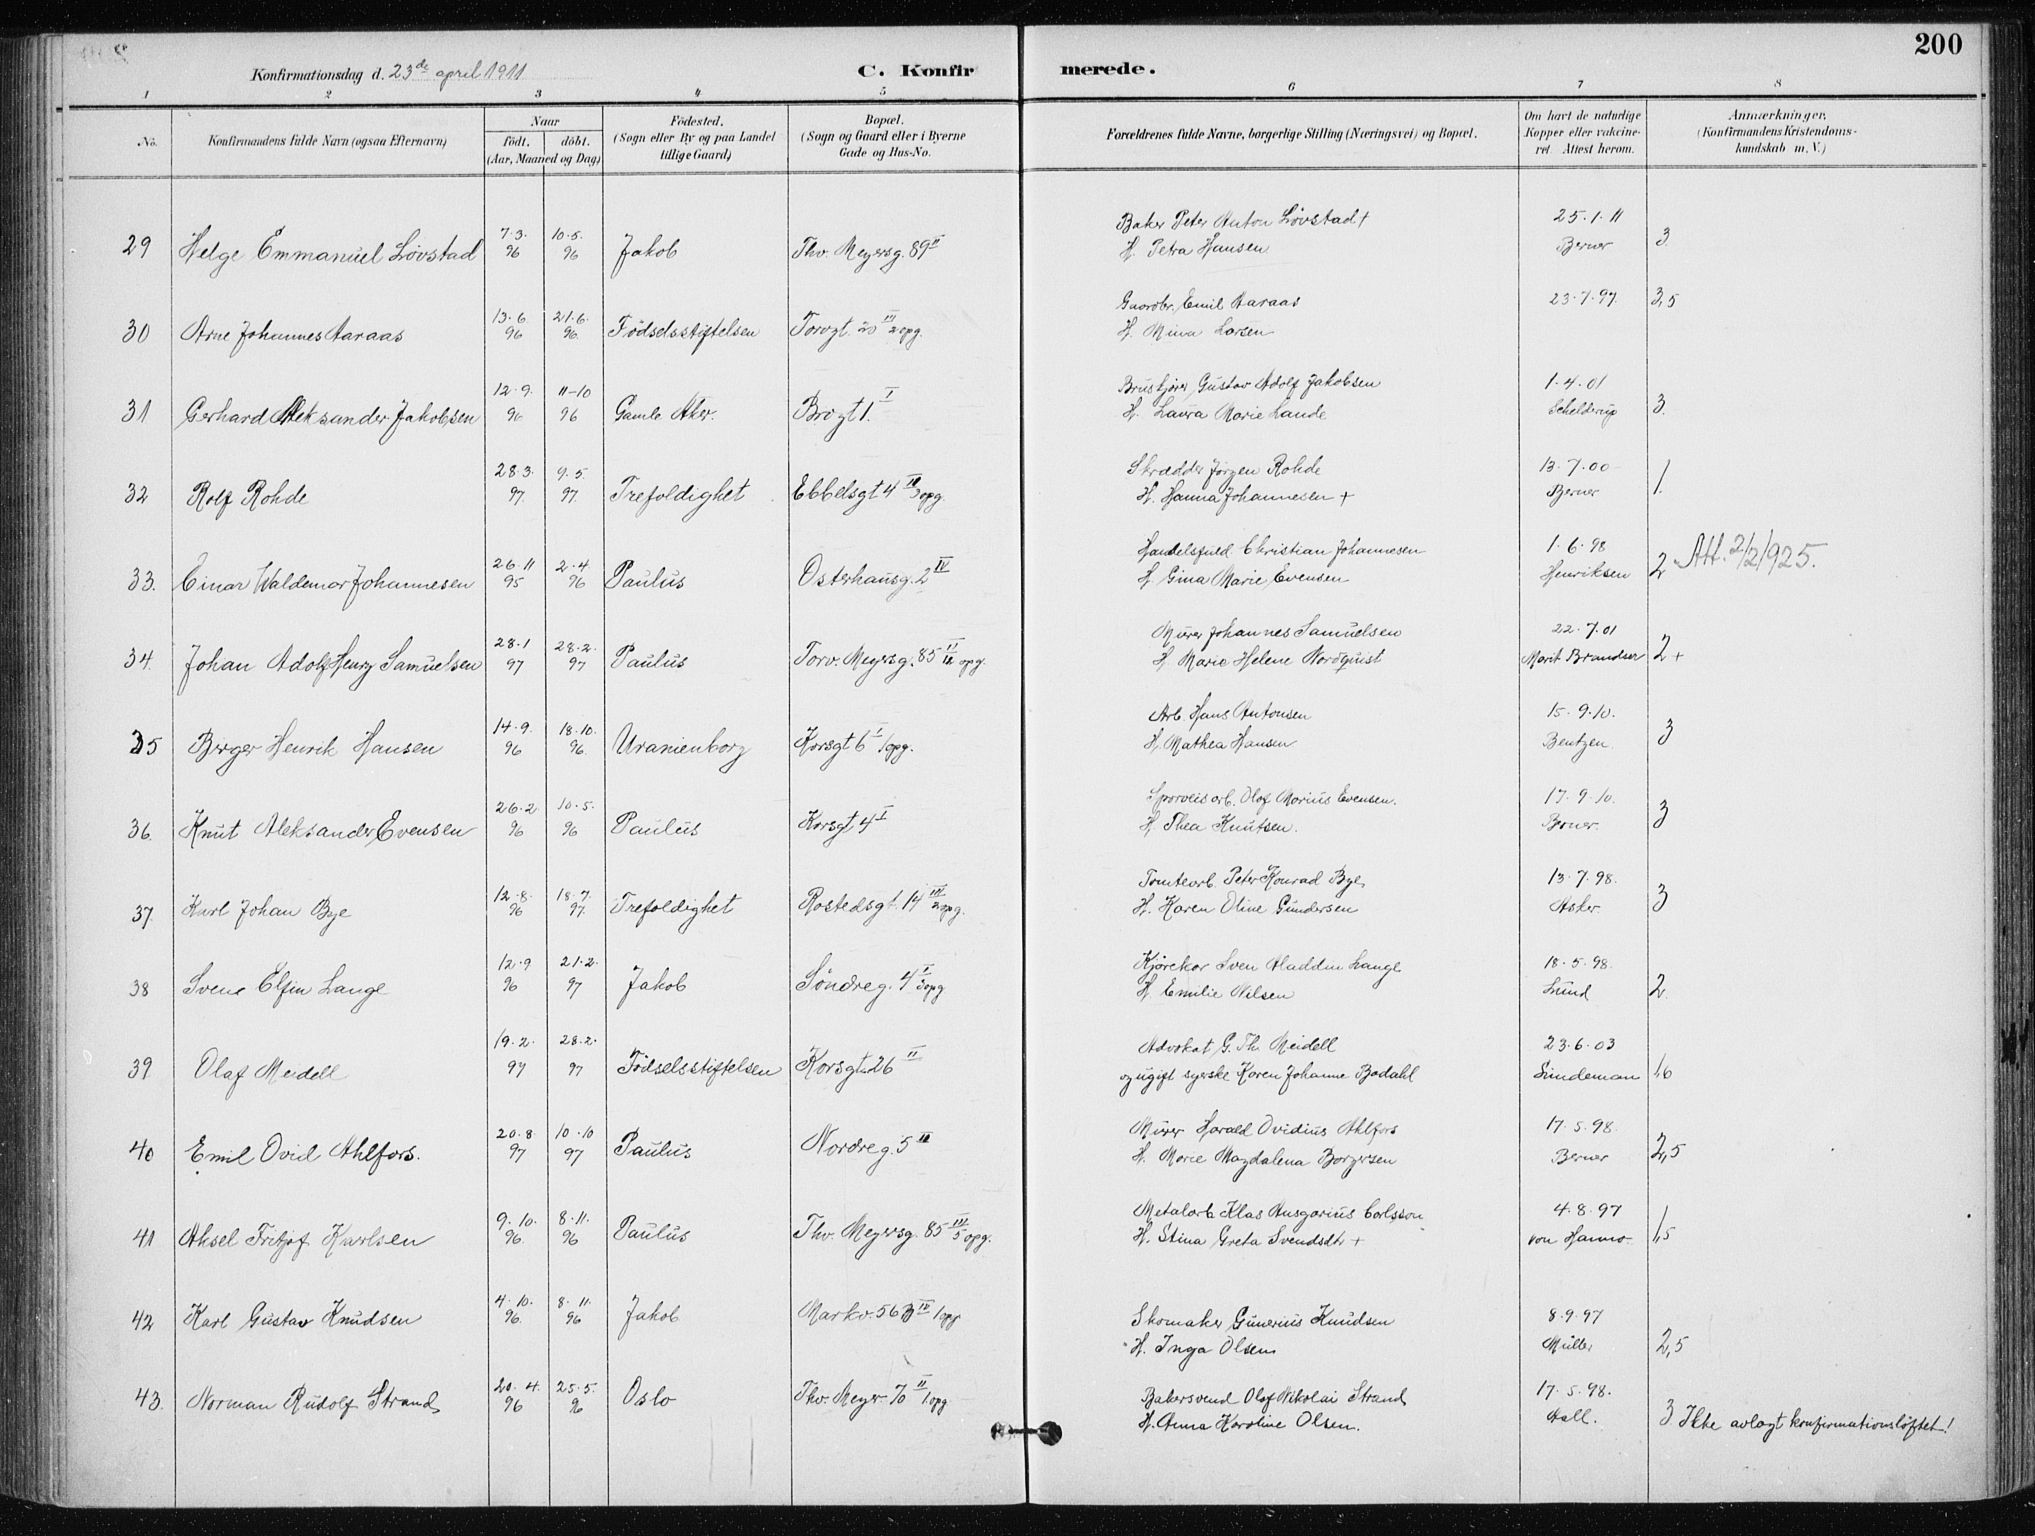 200
Konfirmationsdag d. 23de april 1911
C. Konfirmerede.
1 2 3 4 5 6 7 8
No. Konfirmandens fulde Navn (ogsaa Efternavn) Naar født. døbt. (Aar, Maaned og Dag) Fødested. (Sogn eller By og paa Landet tillige Gaard) Bopæl. (Sogn og Gaard eller i Byerne Gade og Hus-No. Forældrenes fulde Navne, borgerlige Stilling (Næringsvei) og Bopæl. Om havt de naturlige Kopper eller vakcineret. Attest herom. Anmærkninger. (Konfirmandens Kristendomskundskab m. V.)
7.3. 10.5. Baker Peter Anton Løvstad + 25.1.11
29 Helge Emmanuel Løvstad 96 96 Jakob Thv. Meyersg. 89 II H. Petra Hansen Berner 3
13.6 21.6. Gaardbr. Emil Aaraas 23.7.97 3,5
30 Arne Johannes Aaraas 96 96. Fødselsstiftelsen Torvgt. 20 III 2 opg. H. Mina Larsen
12.9. 11-10 Gustav Adolf Jakobsen 1.4.01
31 Gerhard Aleksander Jakobsen 96 96 Gamle Aker. Brogt 1. I H. Laura Marie Lande Schelderup 3.
28.3. 9.5. Skrædder Jørgen Rohde 13.7.00
32 Rolf Rohde 97. 97. Trefoldighet Ebbelsgt 4 3opg. H. Hanna Johannesen + Berner 1.
26.11 2.4. Handelsfuld. Christian Johannesen 1.6.98
33. Einar Waldemar Johannesen 95 96 Paulus Osterhausg. 2 IV H. Gina Marie Evensen Henriksen 2 Att. 2/2 1925.
28.1 28.2. Murer Johannes Samuelsen 22.7.01
34. Johan Adolf Henry Samuelsen 97 97 Paulus Torv. Meyersg. 85 opg. H. Marie Helene Nordquist Marit 2+
14.9. 18.10. Arb. Hans Antonsen 15.9.10.
35 Birger Henrik Hansen 96 96. Uranienborg Korsgt 6 I 1opg. H. Mathea Hansen Bentzen. 3
26.2. 10.5. Sporveisarb. Olaf Marius Evensen. 17.9.10.
36. Knut Aleksander Evensen 96 96 Paulus Korsgt 4 I H. Thea Knutsen. Berner. 3
12.8. 18.7. Tomtearb. Peter Konrad Bye 13.7.98.
37. Karl Johan Bye 96 97. Trefoldighet Rostedsgt. 14 III 2opg. H. Karen Oline Gundersen Asker. 3
12.9 21.2. Kjørekar Sven Aladdin Lange 18.5.98.
38 Svene Elfin Lange 96 97 Jakob Søndreg. 4 I 3opg H. Emilie Nilsen Lund 2.
19.2. 28.2. Advokat G. Th. Meidell 23.6.03
39 Olaf Meidell 97 97 Fødselsstiftelsen Korsgt. 26 II og ugift syerske Karen Johanne Bodahl Lindeman 1,6
20.8 10.10 Murer Harald Ovidius Ahlfors 17.5.98.
40 Emil Ovid Ahlfors. 97 97 Paulus Nordreg. 5 H. Marie Magdalena Borgersen Berner 2,5
9.10. 8.11. Metalarb. Klas Ansgarius Carlsson 4.8.97
41 Aksel Fritjof Karlsen 96 96 Paulus Thv. Meyersg. 85 III 5 opg. H. Stina Greta Svendsdtr + von Hanno. 1,5
4.10. 8.11. Skomaker Gunerius Knudsen 8.9.97
42 Karl Gustav Knudsen 96. 96 Jakob Markv. 56 B IV 1 opg H. Inga Olsen Müller 2,5
20.4. 25.5. Bakersvend Olaf Nikolai Strand 17.5.98.
43. Norman Rudolf Strand 96 96 Oslo Thv. Meyer 70 II 1 opg H. Anna Karoline Olsen. Aall. 3 Ikke avlagt konfirmationsløftet!